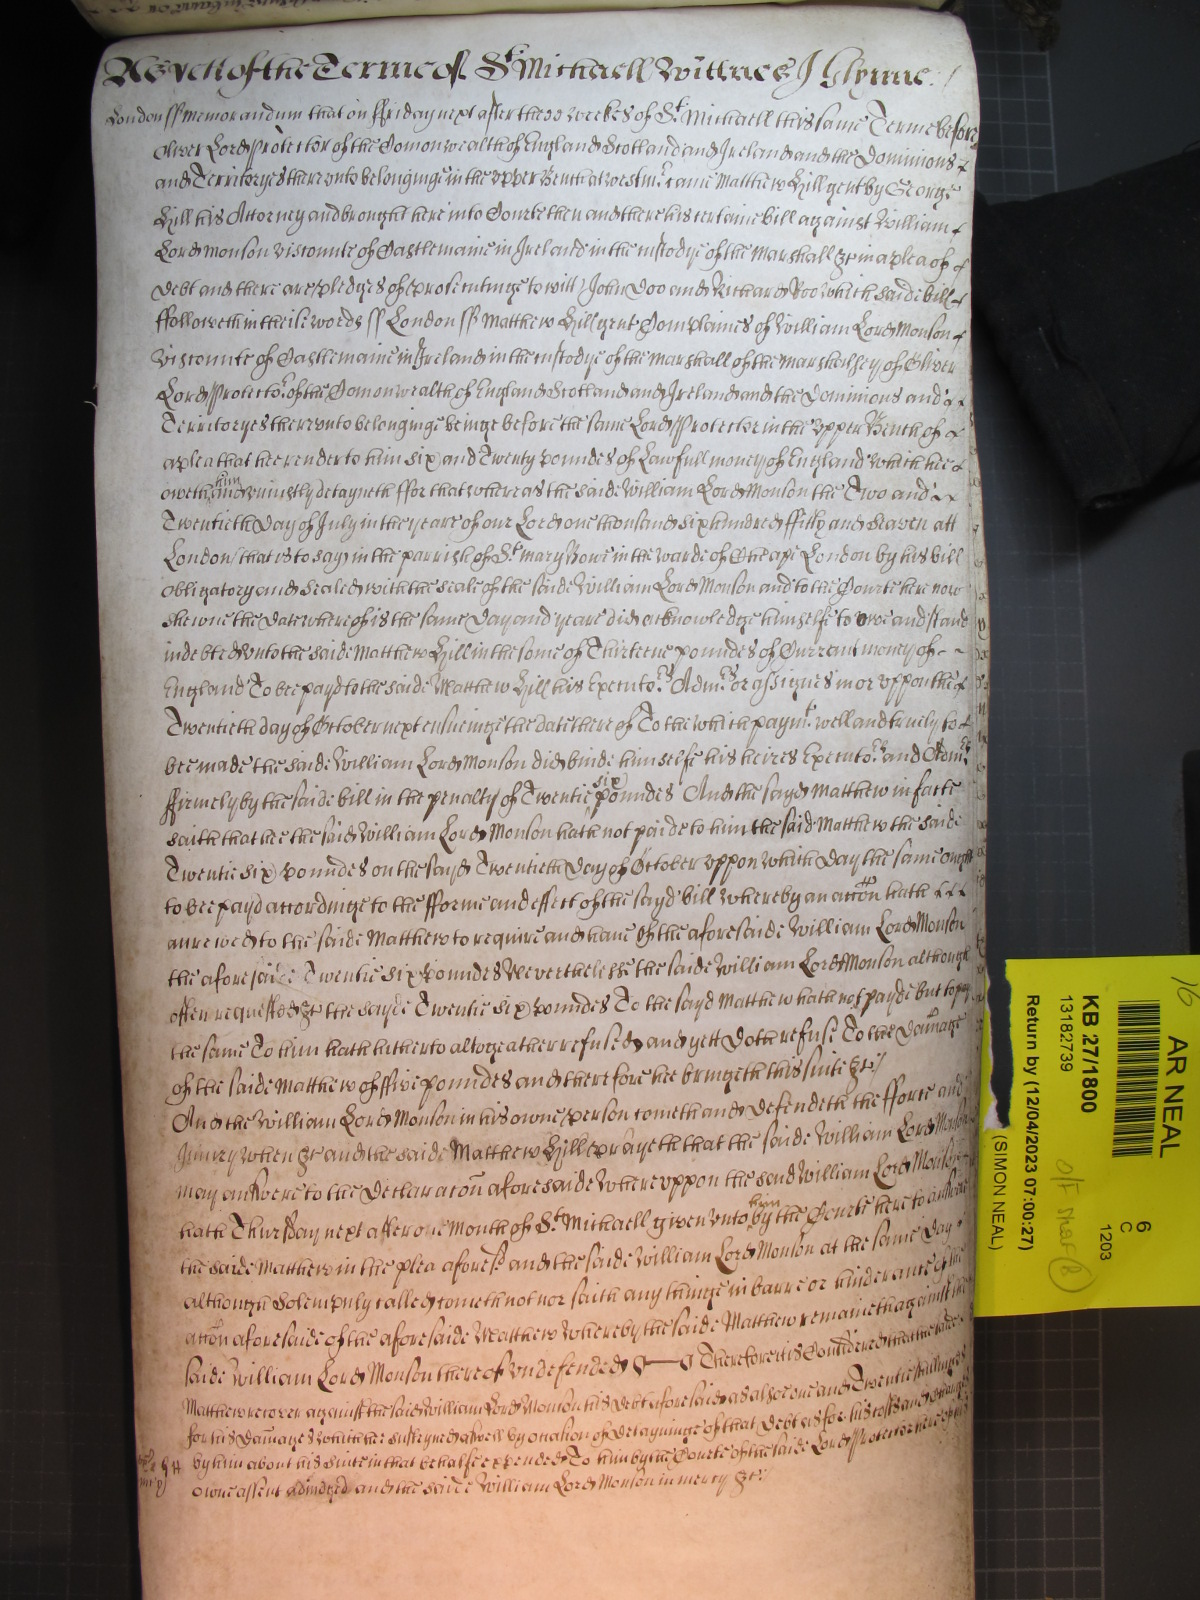 As yett of the Terme of St Michaell Wittnes J Glynne./
London ss Memorandum that on ffriday next after three weekes of St. Michaell this same Terme before
Oliver Lord Protector of the Comonwealth of England Scotland and Ireland and the Dominions
and Territoryes thereunto belonginge in the Upper Bench at Westmr. came Matthew Hill gent by George
Hill his Attorney and brought here into Courte then and there his certaine bill against William
Lord Monson Viscounte of Castlemaine in Ireland in the custodye of the Marshall &c in a plea of
debt and there are pledges of prosecutinge to witt John Doo and Richard Roo which saide bill
ffolloweth in theise words ss London ss Matthew Hill gent Complaines of William Lord Monson
Viscounte of Castlemaine in Ireland in the custodye of the Marshall of the Marshalsey of Oliver
Lord Protector. of the Comonwealth of England Scotland and Ireland and the Dominions and
Territoryes thereunto belonginge beinge before the same Lord Protector in the Upper Bench of
a plea that hee render to him six and Twenty poundes of Lawfull money of England which hee
oweth him and uniustly detayneth ffor that whereas the saide William Lord Monson the Two and
Twentieth Day of July in the yeare of our Lord one thousand six hundred ffifty and seaven att
London (that is to say) in the parrish of St mary Bowe in the warde of Cheape London by his bill
obligatory and sealed with the seale of the saide William Lord Monson and to the Courte here now
shewne the Date whereof is the same Day and yeare did acknowledge himselfe to owe and stand
indebted unto the saide Matthew Hill in the some of Thirteene poundes of Currant money of
England To bee payd to the saide Matthew Hill his Executo.rs Adm.rs or assignes in or uppon the
Twentieth day of October next ensueinge the date thereof To the which paymt. well and truely to
bee made the saide William Lord Monson did binde himselfe his heires Executo.rs and Adm.rs
ffirmely by the saide bill in the penalty of Twentie six poundes And the sayd Matthew in facte
saith that hee the said William Lord Monson hath not paide to him the said Matthew the saide
Twentie six poundes on the sayd Twentieth Day of October uppon which Day the same ought
to bee payd accordinge to the fforme and effect of the sayd bill whereby an accon hath
accrewed to the saide Matthew to require and have of the aforesaide William Lord Monson
the aforesaide Twentie six poundes Neverthelesse the saide William Lord Monson although
often requested &c the sayde Twentie six poundes To the sayd Matthew hath not payde but to pay
the same To him hath hitherto altogeather refused and yett doth refuse To the Damage
of the saide Matthew of ffive poundes and therefore hee bringeth this suite &c:/
And the William Lord Monson in his owne person cometh and defendeth the fforce and
Iniury when &c and the saide Matthew Hill prayeth that the saide William Lord Monson
may answere to the Declaracon aforesaide Whereuppon the said William Lord Monson
hath Thursday next after one Month of St. Michaell given unto him by the Courte here to answere
the saide Matthew in the plea aforesd. and the saide William Lord Monson at the same Day
although Solempnly called cometh not nor saith any thinge in barre or hinderance of the
accon aforesaide of the aforesaide Matthew Whereby the saide Matthew remaineth against the
saide William Lord Monson thereof undefended Therefore it is Considered that the saide
Matthew recover against the said William Lord Monson his Debt aforesaid as also one and Twentie shillinges
for his damages which hee susteyned aswell by occasion of detayninge of that Debt as for his costs and charges
by him about his suite in that behalfe expended To him by the Courte of the saide Lord Protector here uppon his
owne assent adiudged and the saide William Lord Monson in mercy &c:/
16
AR NEAL
KB 27/1800
13182739
Return by (12/04/2023 07:00:27)
(SIMON NEAL)
6
C
1203